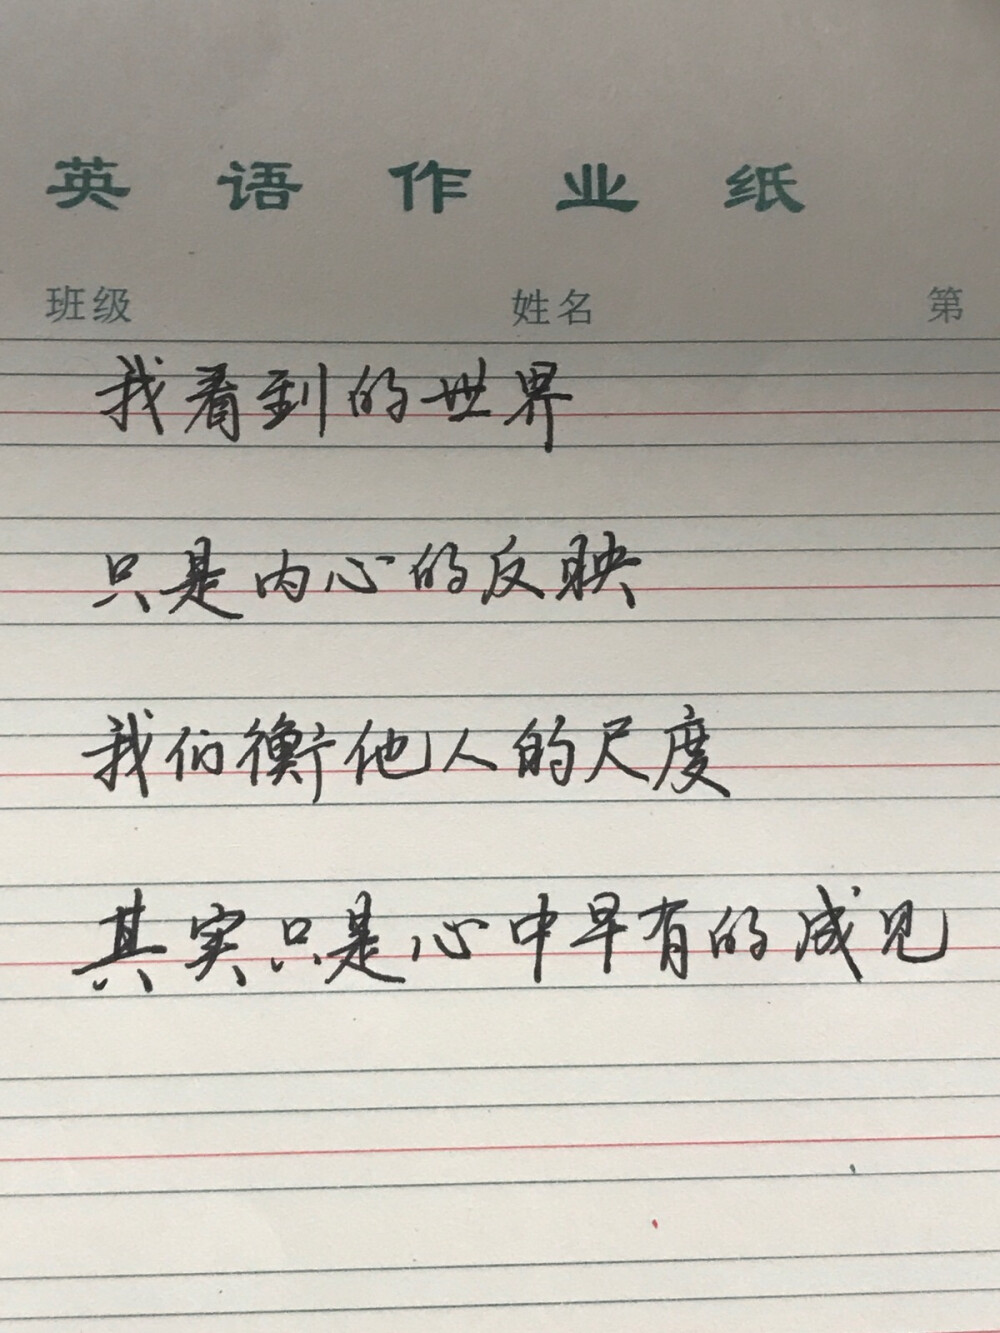 英语作业纸
班级 姓名 第
我看到的世界
只是内心的反映
我们衡他人的尺度
其实只是心中早有的成见